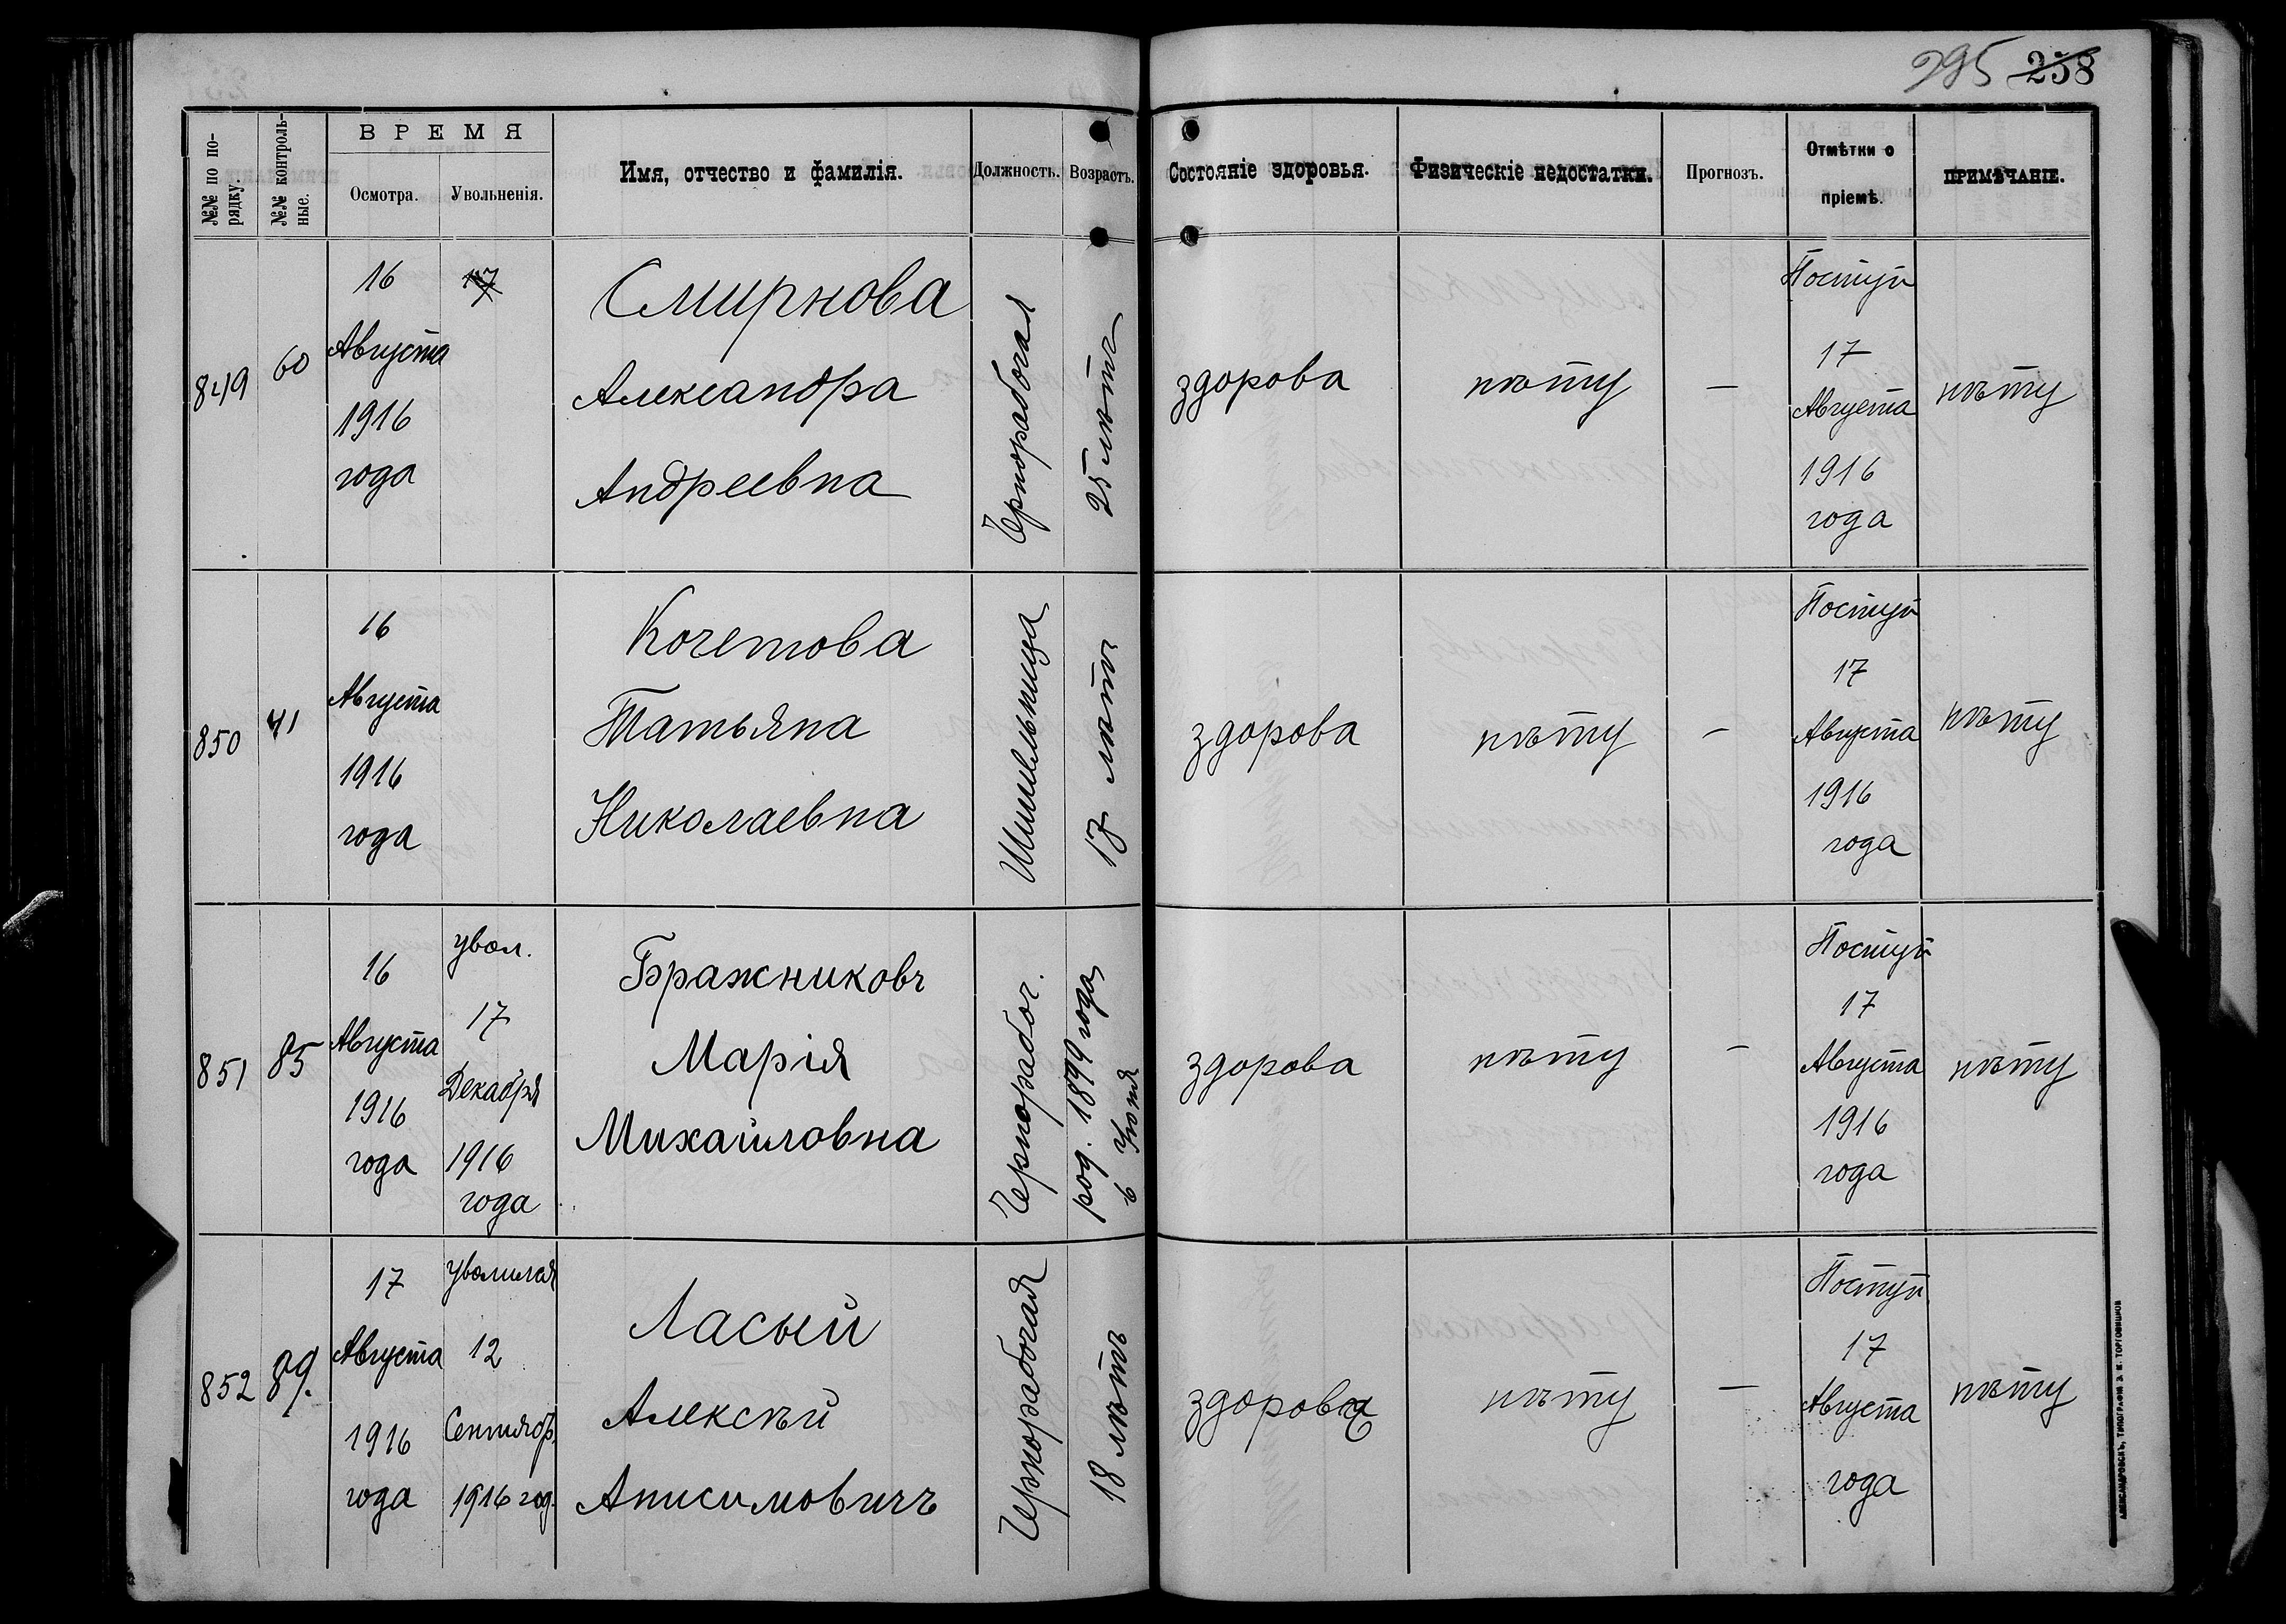 295 258
№№ по по-
рядку.
№№ контроль-
ные.
ВРЕМЯ
Осмотра.
Увольненія.
Имя, отчество и фамилія.
Должность.
Возрастъ.
Состояніе здоровья.
Физическіе недостатки.
Прогнозъ.
Отмѣтки о
пріемѣ.
ПРИМѢЧАНІЕ.
849
60
16
Августа
1916
года
17
Смирнова
Александра
Андреевна
Чернорабочая
25 лѣтъ
здорова
нѣту
—
Поступ
17
Августа
1916
года
нѣту
850
41
16
Августа
1916
года
Кочетова
Татьяна
Николаевна
Шишельница
17 лѣтъ
здорова
нѣту
—
Поступ
17
Августа
1916
года
нѣту
851
85
16
Августа
1916
года
увол.
17
Декабря
1916
года
Бражниковъ
Марія
Михайловна
Чернорабоч.
род. 1899 года
6 Іюня
здорова
нѣту
—
Поступ
17
Августа
1916
года
нѣту
852
89.
17
Августа
1916
года
Уволился
12
Сентябр.
1916 год.
Ласый
Алексѣй
Анисимовичъ
Чернорабочая
18 лѣтъ
здоров
нѣту
—
Поступ
17
Августа
года
нѣту
АЛЕКСАНДРОВСКЪ, ТИПОГРАФІЯ Э. И. ТОРГОВИЦКОВ